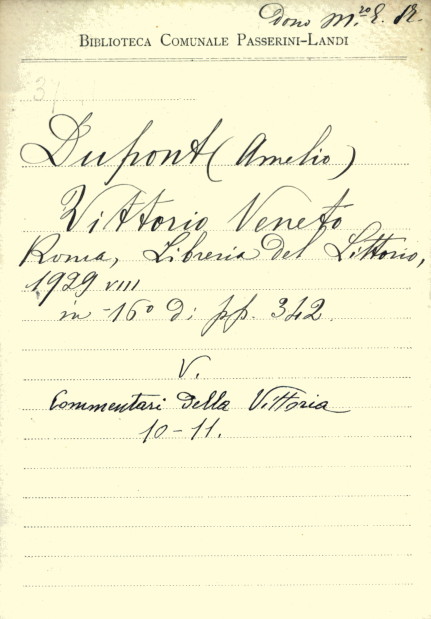 Dono M.ro E. P.
BIBLIOTECA COMUNALE PASSERINI-LANDI
31
Dupont (Amelio)
Vittorio Veneto
Roma, Libreria del Littorio,
1929 VIII
in-16° di pp. 342.
V.
Commentari della Vittoria
10-11.